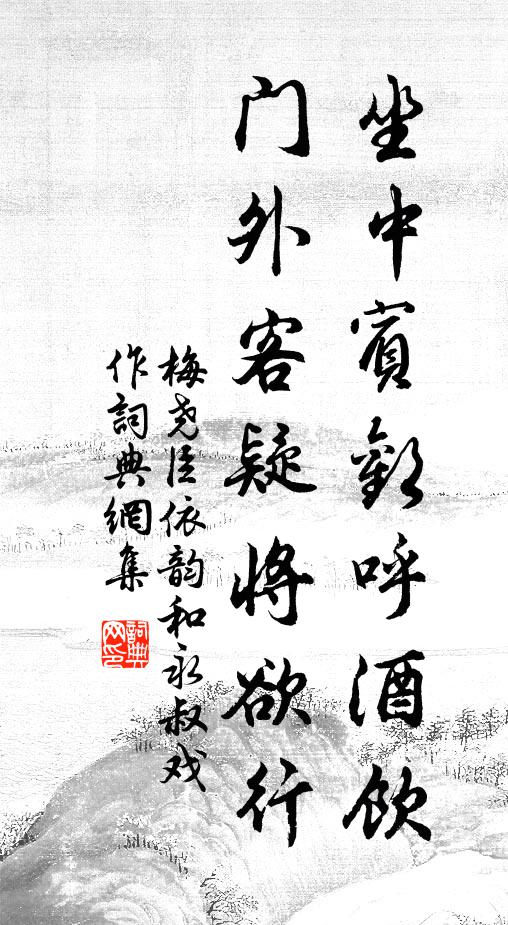 坐中賓歡呼酒飲
門外客疑將欲行
梅堯臣依韵和永叔戏
作詞典網集
詞典
网印